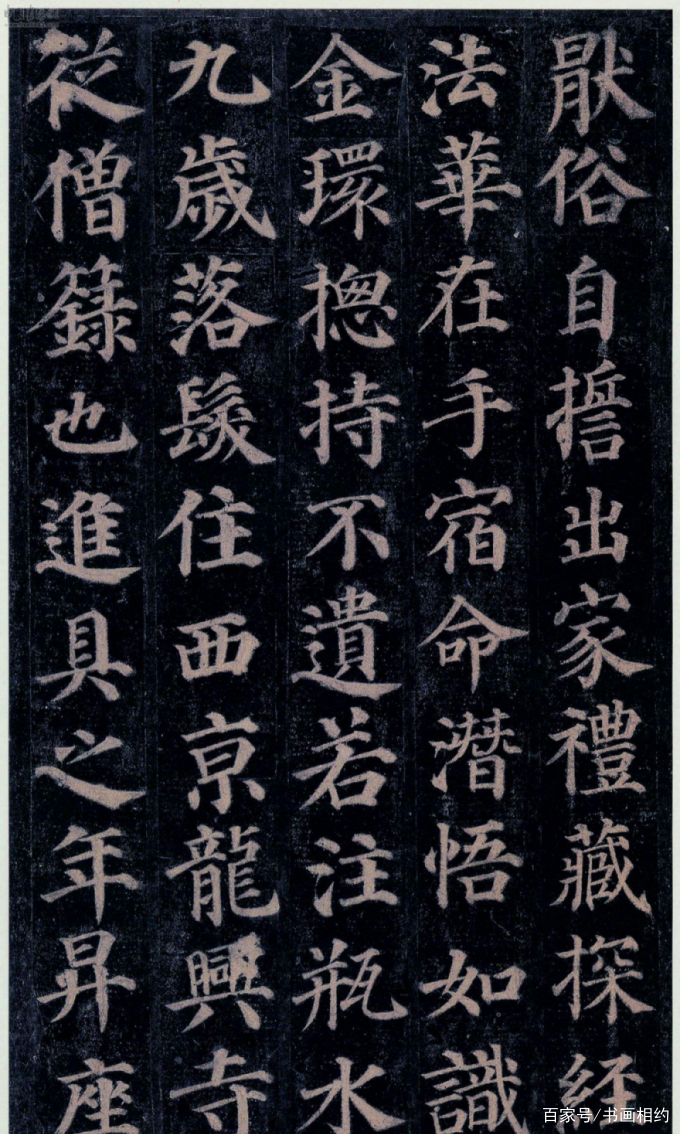 猒俗自誓出家禮藏探經
法華在手宿命潛悟如識
金環捴持不遺若注瓶水
九歲落髮住西京龍興寺
從僧籙也進具之年昇座
百家号/书画相约